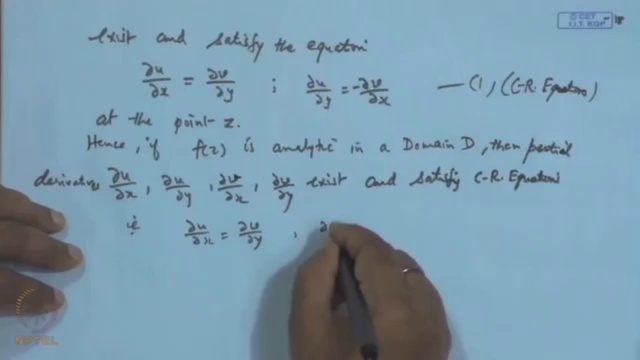 © CET
I.I.T. KGP
exist and satisfy the equation
∂u/∂x = ∂v/∂y ; ∂u/∂y = -∂v/∂x — (1) (C-R. Equations)
at the point z.
Hence, if f(z) is analytic in a Domain D, then partial
derivatives ∂u/∂x, ∂u/∂y, ∂v/∂x, ∂v/∂y exist and satisfy C-R. Equations
ie ∂u/∂x = ∂v/∂y , ∂
NPTEL